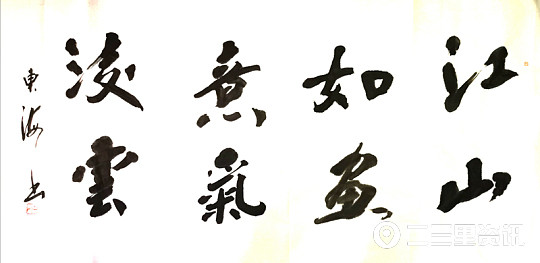 江山
如画
意氣
凌雲
東海书
二三里资讯